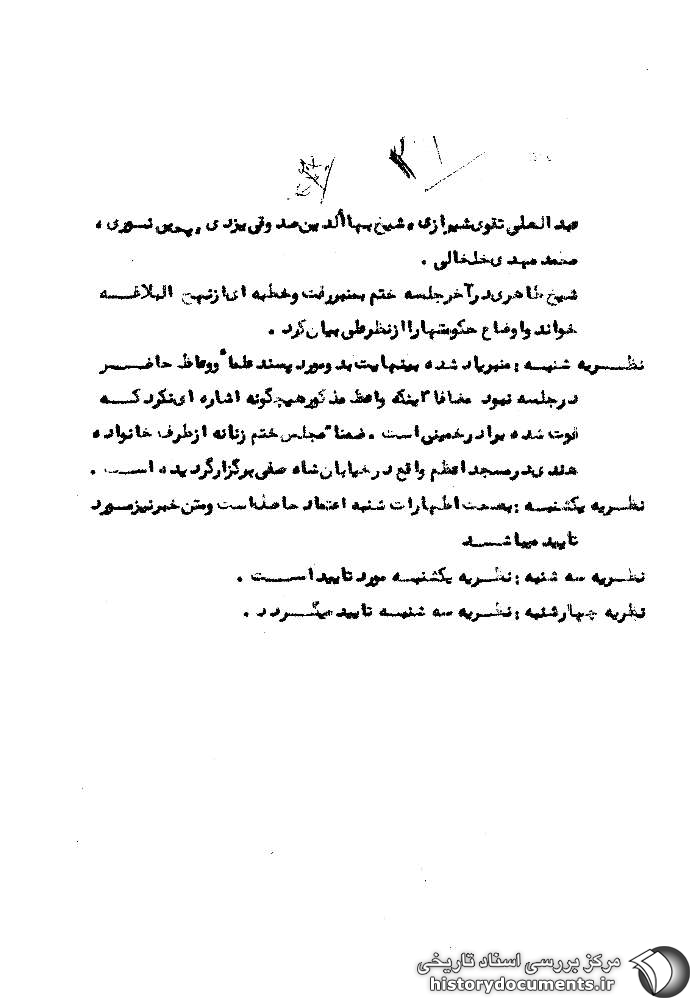 عبدالعلی تقوی شیرازی، شیخ بهاالدین صدوقی یزدی، یحیی نوری،
محمد مهدی خلخالی .
شیخ طاهری در آخر جلسه ختم بمنبر رفت و خطبه ای از نهج البلاغه
خواند و اوضاع حکومتها را از نظر علی بیان کرد .
نظریه شنبه : منبر یاد شده بینهایت بد و مورد پسند علما و وعاظ حاضر
در جلسه نبود مضافا اینکه واعظ مذکور هیچگونه اشاره ای نکرد که
فوت شده برادر خمینی است . ضمنا مجلس ختم زنانه از طرف خانواده
هندی در مسجد اعظم واقع در خیابان شاه صفی برگزار گردیده است .
نظریه یکشنبه : بصحت اظهارات شنبه اعتماد حاصل است و متن خبر نیز مورد
تایید میباشد
نظریه سه شنبه : نظریه یکشنبه مورد تایید است .
نظریه چهارشنبه : نظریه سه شنبه تایید میگردد .
مرکز بررسی اسناد تاریخی
historydocuments.ir